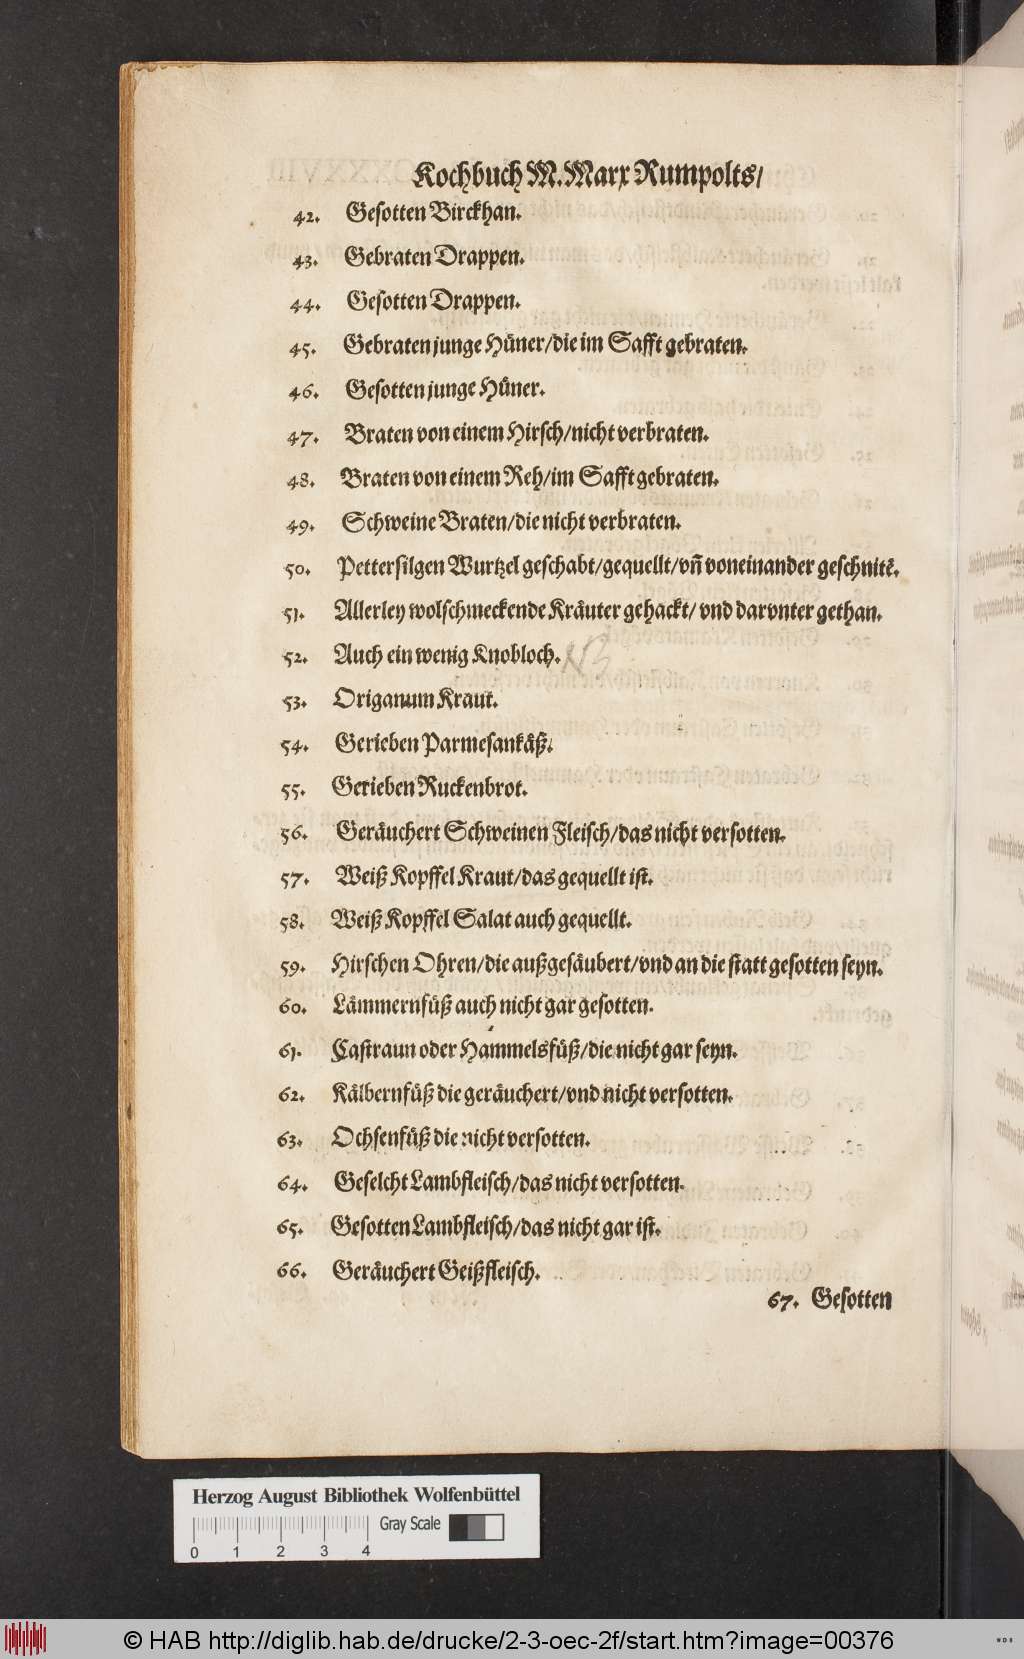 Kochbuch M. Marx Rumpolts/
42. Gesotten Birckhan.
43. Gebraten Drappen.
44. Gesotten Drappen.
45. Gebraten junge Hüner/die im Safft gebraten.
46. Gesotten junge Hüner.
47. Braten von einem Hirsch/nicht verbraten.
48. Braten von einem Reh/im Safft gebraten.
49. Schweine Braten/die nicht verbraten.
50. Pettersilgen Wurtzel geschabt/gequellt/vñ voneinander geschnitē.
51. Allerley wolschmeckende Kräuter gehackt/ vnd darvnter gethan.
52. Auch ein wenig Knobloch.
53. Origanum Kraut.
54. Gerieben Parmesankäß.
55. Gerieben Ruckenbrot.
56. Geräuchert Schweinen Fleisch/das nicht versotten.
57. Weiß Kopffel Kraut/das gequellt ist.
58. Weiß Kopffel Salat auch gequellt.
59. Hirschen Ohren/die außgesäubert/vnd an die statt gesotten seyn.
60. Lämmernfüß auch nicht gar gesotten.
61. Castraun oder Hammelsfüß/die nicht gar seyn.
62. Kälbernfüß die geräuchert/vnd nicht versotten.
63. Ochsenfüß die nicht versotten.
64. Geselcht Lambfleisch/das nicht versotten.
65. Gesotten Lambfleisch/das nicht gar ist.
66. Geräuchert Geißfleisch.
67. Gesotten
Herzog August Bibliothek Wolfenbüttel
Gray Scale
0 1 2 3 4
© HAB http://diglib.hab.de/drucke/2-3-oec-2f/start.htm?image=00376